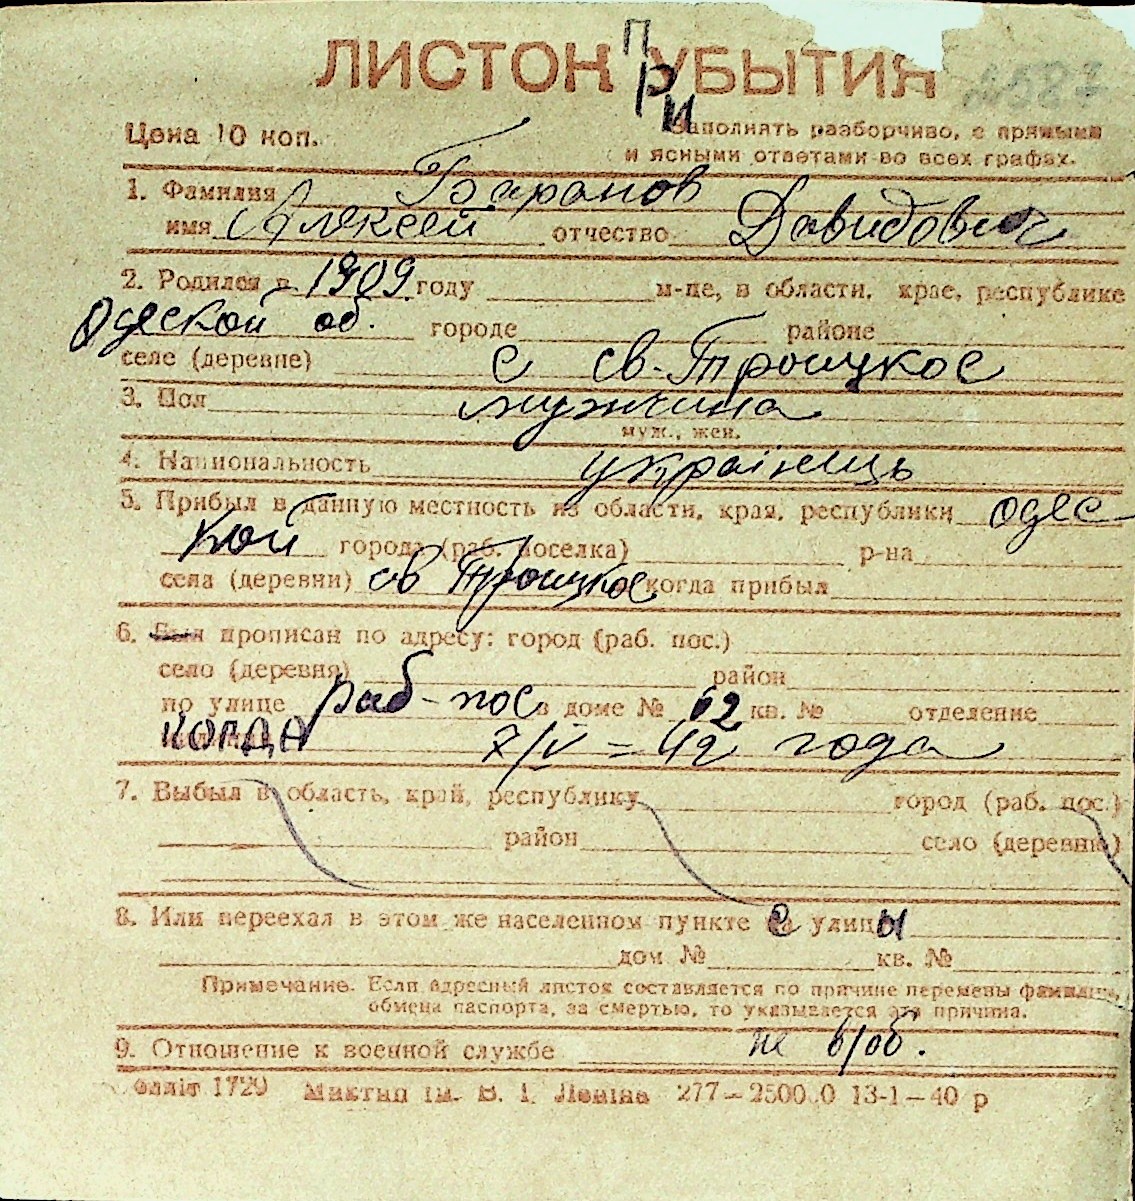 ЛИСТОК УБЫТИЯ
При
Цена 10 коп.
Заполнять разборчиво, с прямыми
и ясными ответами во всех графах.
1. Фамилия Баранов
имя Алексей отчество Давидович
2. Родился в 1909 году м-це, в области, крае, республике
Одеской об. городе районе
селе (деревне) с св-Троицкое
3. Пол мужчина
муж., жен.
4. Национальность українець
5. Прибыл в данную местность из области, края, республики одес
кой города (раб. поселка) р-на
села (деревни) св Троицкое когда прибыл
6. Был прописан по адресу: город (раб. пос.)
село (деревня) район
по улице раб-пос в доме № 62 кв. № отделение
КОГДА 7/V = 42 года
7. Выбыл в область, край, республику город (раб. пос.)
район село (деревню)
8. Или переехал в этом же населенном пункте с улицы
дом № кв. №
Примечание. Если адресный листок составляется по причине перемены фамилии,
обмена паспорта, за смертью, то указывается эта причина.
9. Отношение к военной службе не в/об.
Обліт 1729 Миктип ім. В. І. Леніна 277—250000 13-1—40 р